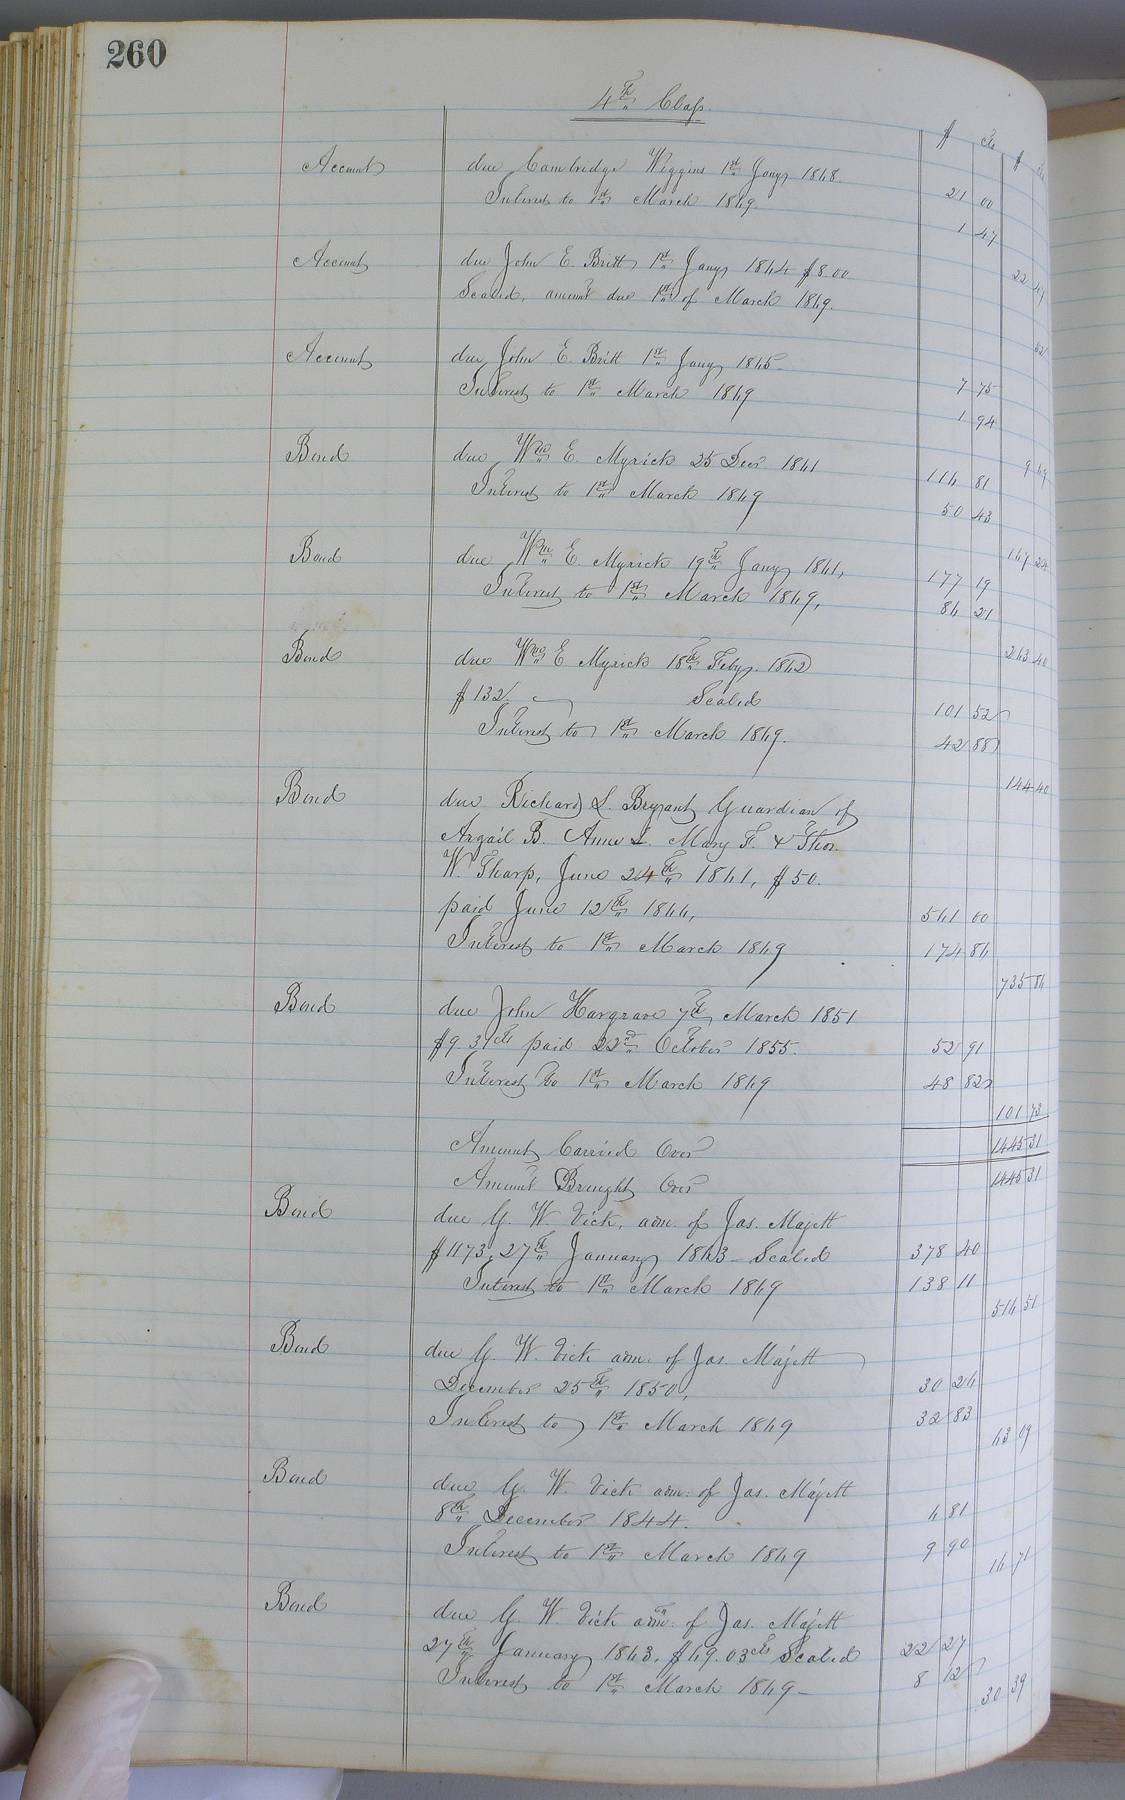 260
4th Class
$ cts $ cts
Account due Cambridge Wiggins 1st Jany 1868. 21 00
Interest to 1st March 1869. 1 47
22 47
Account due John E. Britt 1st Jany 1864 $8 00
Scaled, amount due 1st of March 1869. 52
Account due John E. Britt 1st Jany 1865 7 75
Interest to 1st March 1869 1 94
9 69
Bond due Wm E. Myrick 25 Decr 1861 116 81
Interest to 1st March 1869 50 43
167 24
Bond due Wm E. Myrick 19th Jany 1861, 177 19
Interest to 1st March 1869, 86 21
263 40
Bond due Wm E Myrick 18th Feby. 1862
$132. Scaled 101 52
Interest to 1st March 1869. 42 88
144 40
Bond due Richard L. Bryant Guardian of
Argail B. Anne L. Mary F. & Thos.
W. Tharp, June 24th 1861, $50.
paid June 12th 1866, 561 00
Interest to 1st March 1869 174 86
735 86
Bond due John Hargrave 7th March 1851
$9 31cts paid 22nd October 1855. 52 91
Interest to 1st March 1869 48 82
101 73
Amount Carried Over 1445 31
Amount Brought Over 1445 31
Bond due G. W. Vick, adm. of Jas. Majett
$1173, 27th January 1863 - Scaled 378 40
Interest to 1st March 1869 138 11
516 51
Bond due G. W. Vick adm. of Jas. Majett
December 25th 1850, 30 26
Interest to 1st March 1869 32 83
63 09
Bond due G. W. Vick adm. of Jas. Majett
8th December 1844. 6 81
Interest to 1st March 1869 9 90
16 71
Bond due G. W Vick adm. of Jas. Majett
27th January 1863, $69.03cts Scaled 22 27
Interest to 1st March 1869 - 8 12
30 39